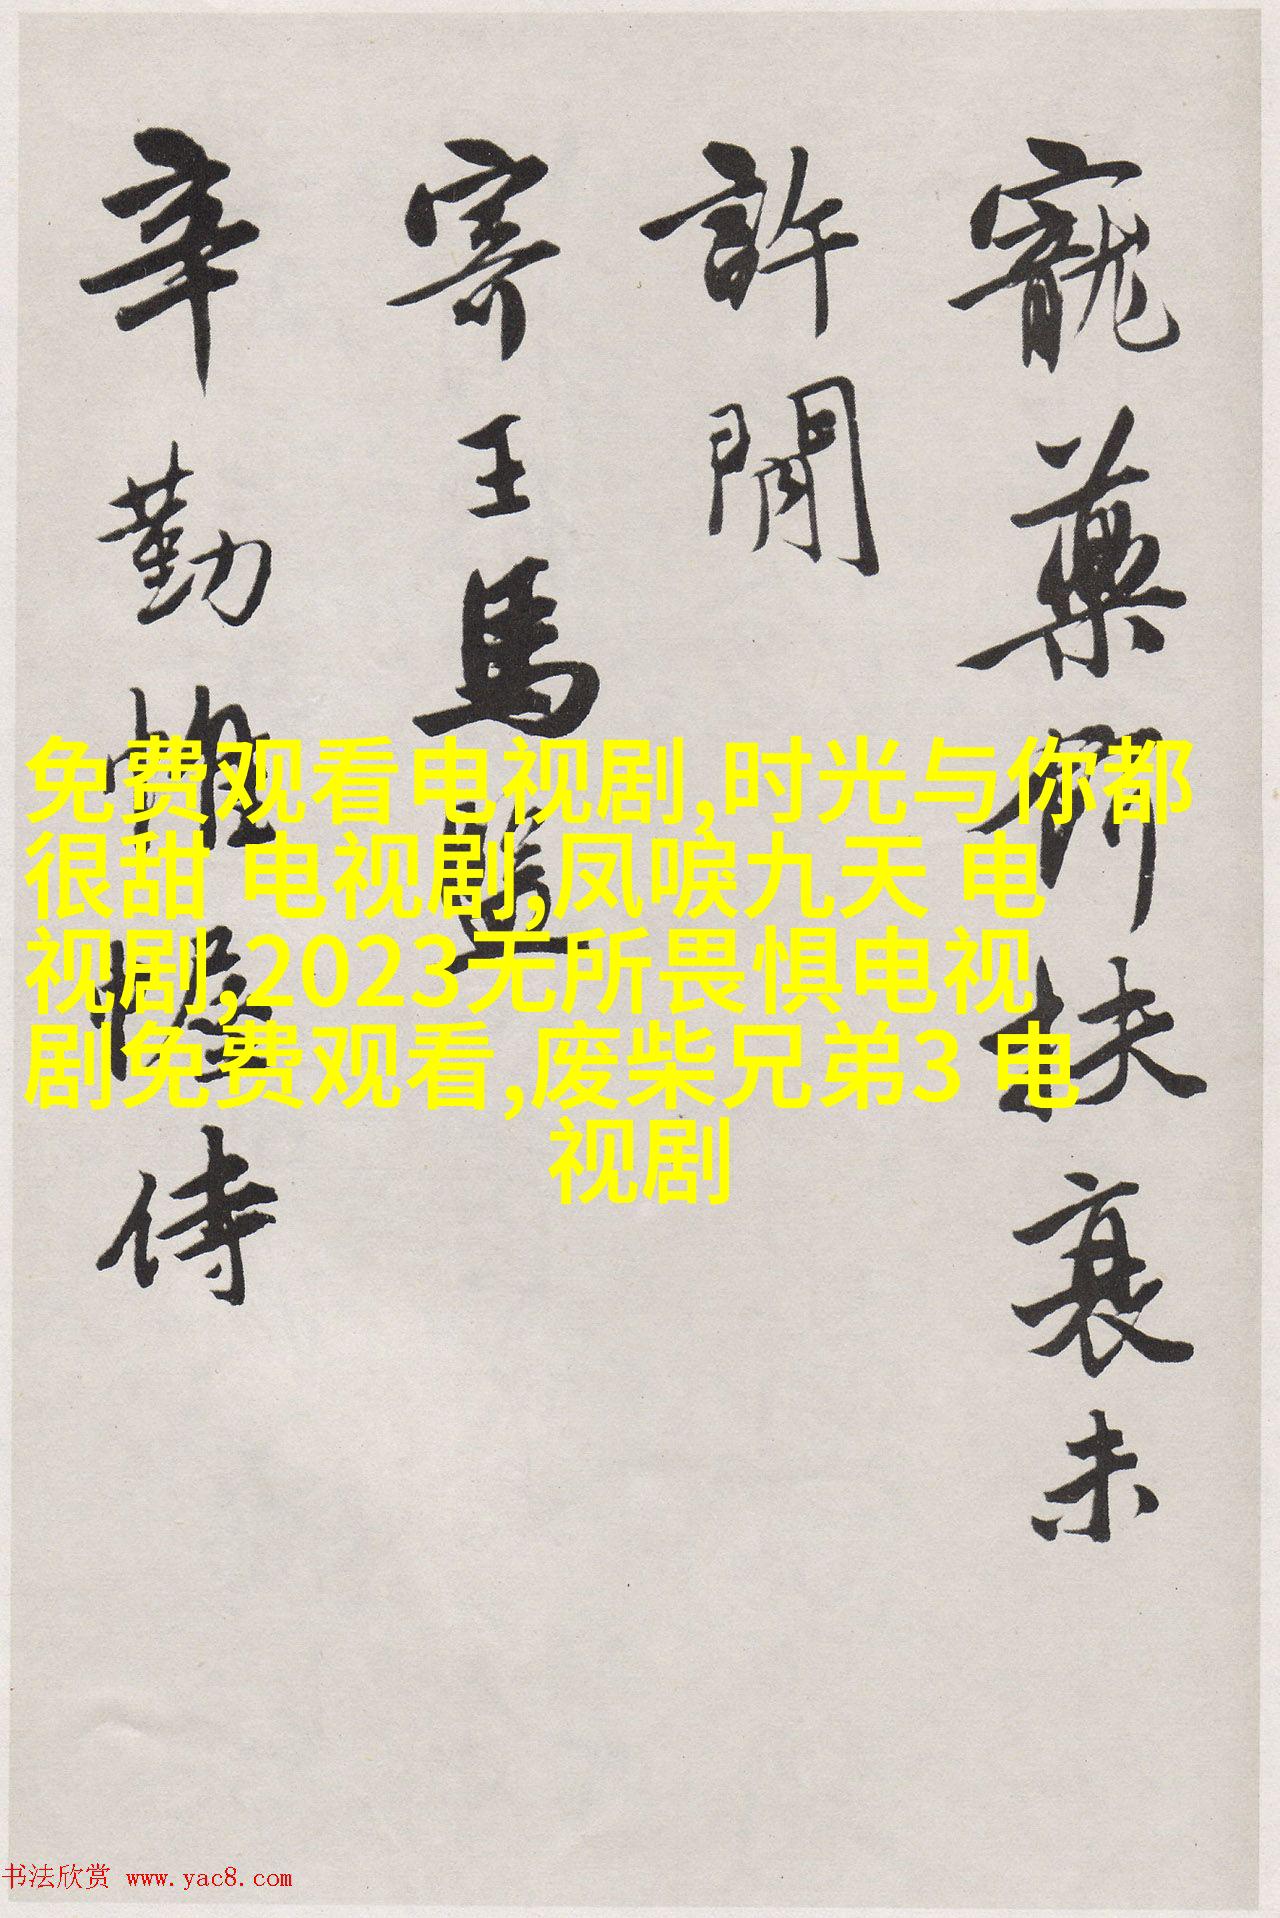 寵藥扶衰未
許閒
寄王馬監
辛勤帷幄侍
免费观看电视剧,时光与你都
很甜 电视剧,凤唳九天 电
视剧,2023无所畏惧电视
剧免费观看,废柴兄弟3 电
视剧
书法欣赏 www.yac8.com